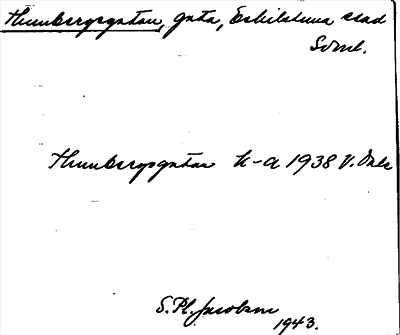 Thunbergsgatan, gata, Eskilstuna stad
Sörml.
Thunbergsgatan h-a 1938 V. Dals
S. Pl. Jacobson
1943.